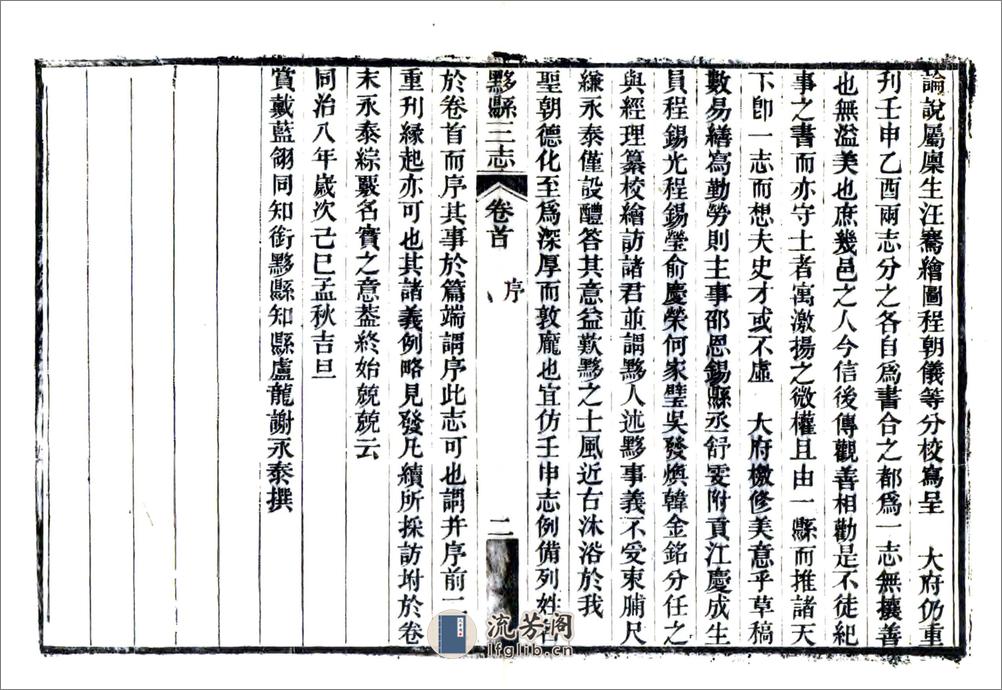 論說屬廩生汪騫繪圖程朝儀等分校寫呈　大府仍重
刊壬申乙酉兩志分之各自爲書合之都爲一志無攘善
也無溢美也庶幾邑之人今信後傳觀善相勸是不徒紀
事之書而亦守土者寓激揚之微權且由一縣而推諸天
下卽一志而想夫史才或不虛　大府檄修美意乎草稿
數易繕寫勤勞則主事邵恩錫縣丞舒雯附貢江慶成生
員程錫光程錫瑩俞慶榮何家璧吳發煥韓金銘分任之
與經理纂校繪訪諸君並謂黟人述黟事義不受束脯尺
縑永泰僅設醴答其意益歎黟之士風近古沐浴於我
聖朝德化至爲深厚而敦龐也宜仿壬申志例備列姓名
黟縣三志　卷首　序　二
於卷首而序其事於篇端謂序此志可也謂并序前二
重刊緣起亦可也其諸義例略見發凡續所採訪坿於卷
末永泰綜覈名實之意葢終始兢兢云
同治八年歲次己巳孟秋吉旦
賞戴藍翎同知銜黟縣知縣盧龍謝永泰撰
流芳阁
lfglib.cn